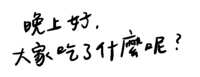 晚上好，
大家吃了什麼呢？